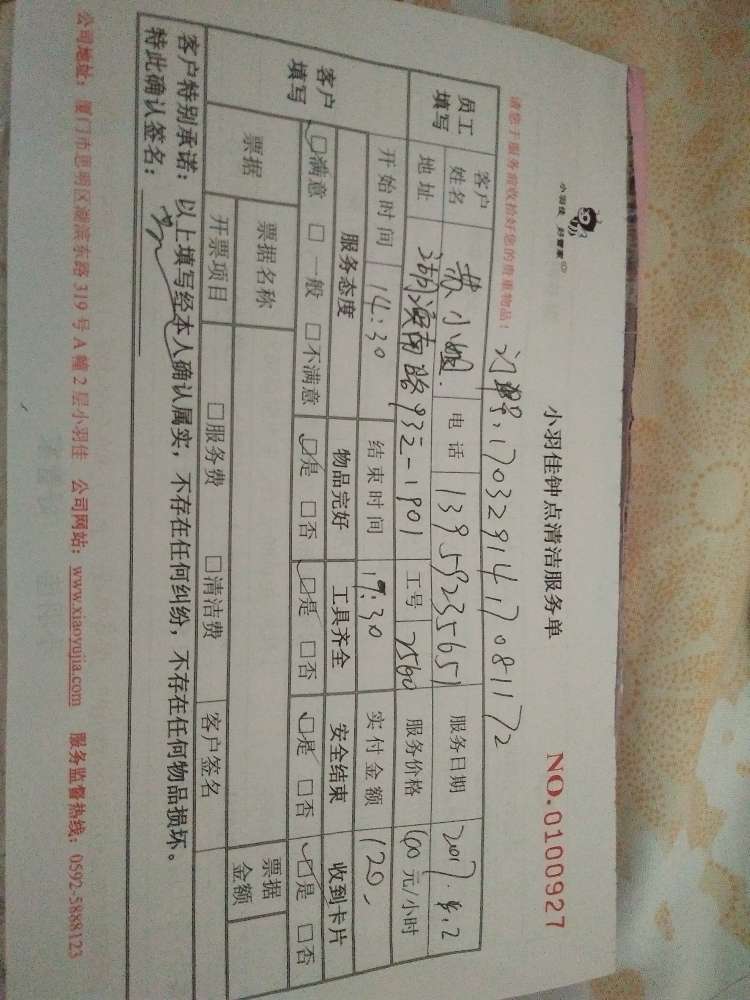 小羽佳 好管家
小羽佳钟点清洁服务单
NO.0100927
请您于服务前收拾好您的贵重物品!
1703291417081172
员工填写
客户姓名 苏小姐 电话 13959235651 服务日期 2017.4.2
地址 湖滨南路932-1901 工号 7560 服务价格 60元/小时
开始时间 14:30 结束时间 17:30 实付金额 120
客户填写
服务态度 物品完好 工具齐全 安全结束 收到卡片
☑满意 □一般 □不满意 ☑是 □否 ☑是 □否 ☑是 □否 ☑是 □否
票据 票据名称 票据金额
开票项目 □服务费 □清洁费 客户签名
客户特别承诺:以上填写经本人确认属实,不存在任何纠纷,不存在任何物品损坏。
特此确认签名:
公司地址:厦门市思明区湖滨东路319号A幢2层小羽佳 公司网站:www.xiaoyujia.com 服务监督热线:0592-5888123